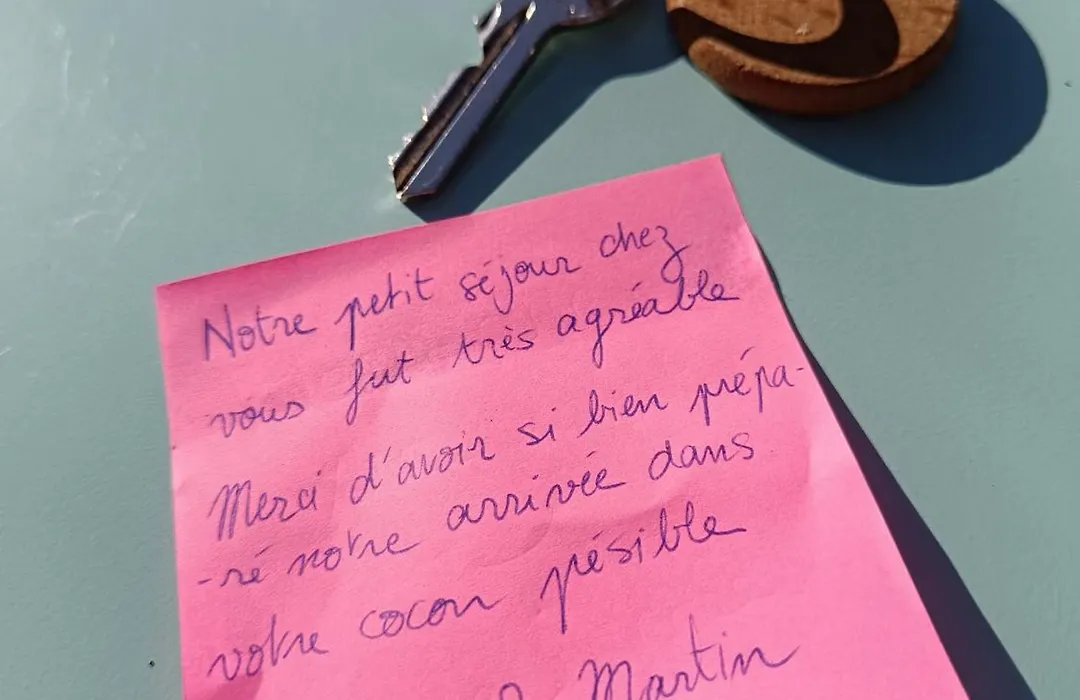 Notre petit séjour chez
vous fut très agréable
Merci d'avoir si bien prépa-
-ré notre arrivée dans
votre cocon pésible
Martin